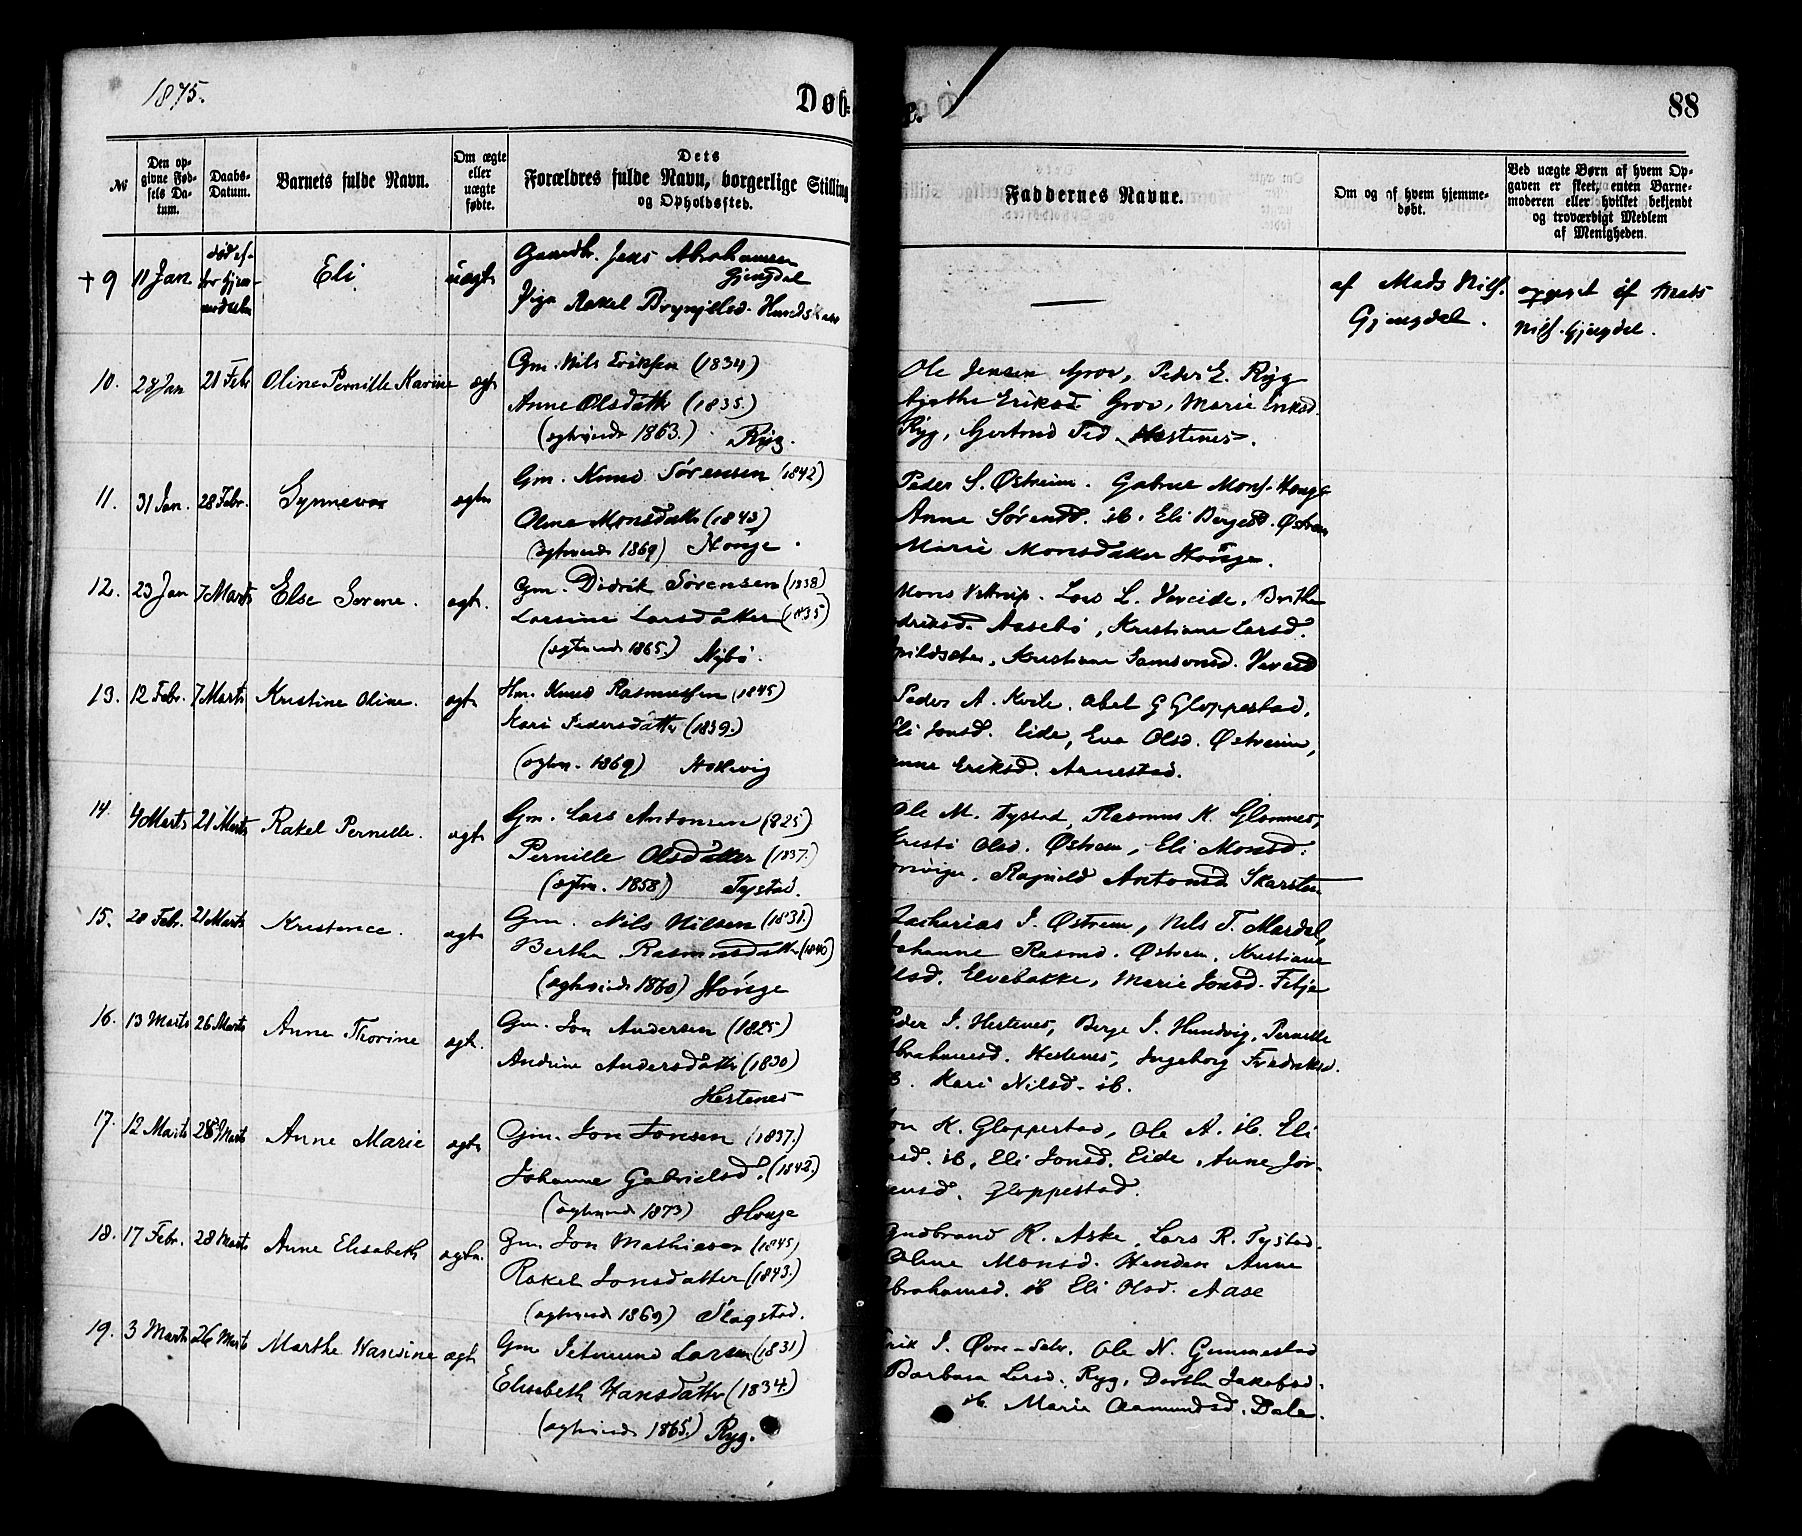 1875.
Døb-
e.
88
№
Den op-
givne Fød-
sels Da-
tum.
Daabs-
Datum.
Barnets fulde Navn.
Om ægte
eller
uægte
fødte.
Dets
Forældres fulde Navn, borgerlige Stilling
og Opholdssted.
Faddernes Navne.
Om og af hvem hjemme-
døbt.
Ved uægte Børn af hvem Op-
gaven er skeet, enten Barne-
moderen eller hvilket bekjendt
og troværdigt Medlem
af Menigheden.
+ 9 11 Jan. Eli uægt Jens Abrahamsen
Gjengdal
Pige Rakel
af Mads Nils.
Gjengdal.
af Mads
Nils. Gjengdal.
10. 28 Jan 21 Febr Oline Pernille Karine ægt Gm. Nils Eriksen (1834)
Anne Olsdatter (1835.)
(ægteviede 1863.) Ryg.
Ole Jensen Grov, Peder E. Ryg
Eriksd Grov, Marie Eriksd.
Ryg, Gertrud Ped Hestenes.
11. 31 Jan. 28 Febr. Synneva ægte Gm. Knud Sørensen (1842)
Oline Monsdatter (1843)
(ægteviede 1869) Houge.
Peder S. Østreim. Gabriel Mons. Houge
Anne Sørensd. ib. Eli Børgesd. Østreim
Marie Monsdatter Houge.
12. 23 Jan 7 Marts Else Serene. ægt. Gm. Didrik Sørensen (1838)
Larsine Larsdatter (1835)
(ægteviede 1865.) Nybø.
Lars L. Vereide. Brithe
Aasebø, Kristiane Larsd.
Kristiane Samsonsd.
13. 12 Febr. 7 Marts Kristine Oline. ægt Hm. Knud Rasmussen (1845)
Kari Pedersdatter (1839.)
(ægtev. 1869)
Peder A. Kvile. Abel G Gloppestad,
Eli Jonsd. Eide, Eva Olsd. Østreim,
Eriksd. Arnestad.
14. 4 Marts 21 Marts Rakel Pernille. ægt Gm. Lars Antonsen (1825)
Pernille Olsdatter (1837.)
(ægtev. 1858) Tystad.
Ole M. Tystad, Rasmus K. Glomnes,
Olsd. Østreim, Eli Monsd.
Ragnild Antonsd Skarsten
15. 20 Febr. 21 Marts Kristence. ægt Gm. Nils Nilsen (1831.)
Berthe Rasmusdatter (1840)
(ægteviede 1860) Houge
Zacharias J. Østreim, Nils T. Mardal,
Johanne Rasmd. Østreim, Kristiane
Elvebakke, Marie Jonsd.
16. 13 Marts 26 Marts Anne Thorine ægt. Gm. Jon Andersen (1825)
Andrine Andersdatter (1830)
Hestenes
Peder J. Hestenes, Børge J. Hundvig, Pernille
Abrahamsd. Hestenes, Ingeborg Fredriksd.
ib. Kari Nilsd. ib.
17. 12 Marts 28 Marts Anne Marie ægt Gm. Jon Jonsen (1837.)
Johanne Gabrielsd. (1842.)
(ægteviede 1873) Houge
Jon K. Gloppestad, Ole A. ib. Eli
ib, Eli Jonsd. Eide, Anne Jør-
gensd. Gloppestad.
18. 17 Febr. 28 Marts Anne Elisabeth ægte. Gm. Jon Mathiasen (1845)
Rakel Jonsdatter (1843.)
(ægteviede 1869) Flogstad.
Gudbrand R. Aske, Lars R. Tystad.
Oline Monsd. Henden Anne
Abrahamsd. ib Eli Olsd. Aase
19. 3 Marts 26 Marts Marthe Hansine ægt Gm Larsen (1831)
Elisabeth Hansdatter (1834.)
(ægteviede 1865.) Ryg.
Erik J. Øvre-Sætr. Ole N. Gimmestad
Barbara Larsd. Ryg, Dorthe Jakobsd.
ib. Marie Aamundsd. Dale.